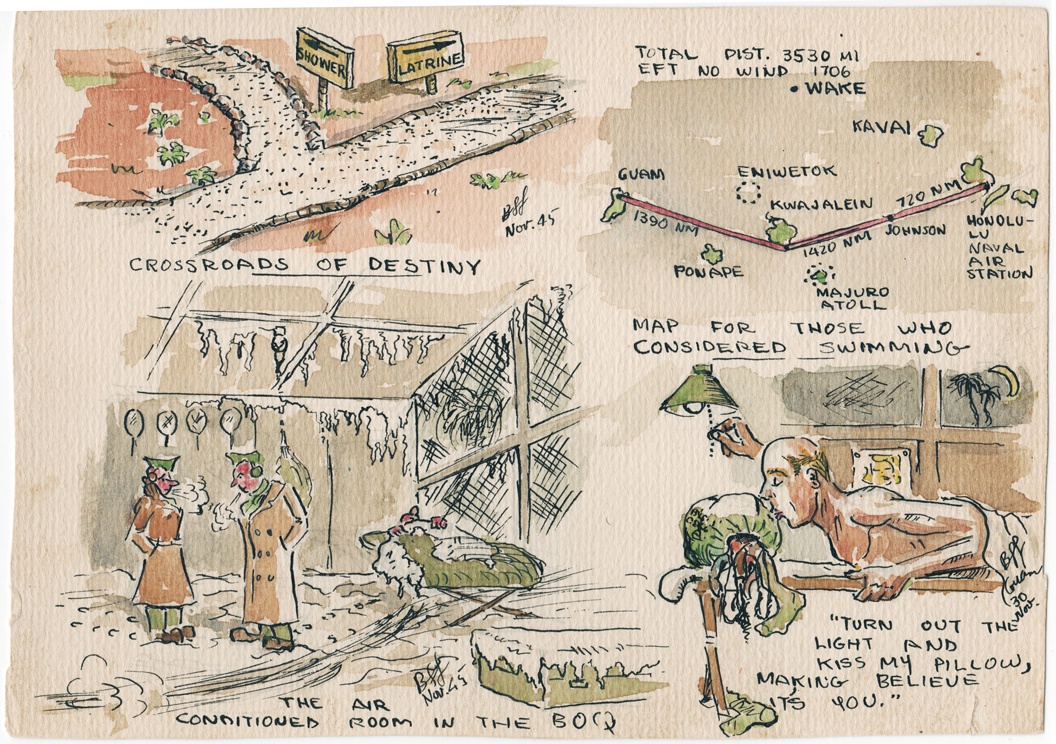 SHOWER
LATRINE
Bff
Nov. 45
CROSSROADS OF DESTINY
TOTAL DIST. 3530 MI
EFT NO WIND 1706
WAKE
KAVAI
GUAM
ENIWETOK
KWAJALEIN
1390 NM
1420 NM
720 NM
JOHNSON
PONAPE
MAJURO
ATOLL
HONOLU-
LU
NAVAL
AIR
STATION
MAP FOR THOSE WHO
CONSIDERED SWIMMING
Bff
Nov. 45
THE AIR
CONDITIONED ROOM IN THE BOQ
Bff
Guam
30
Nov.
"TURN OUT THE
LIGHT AND
KISS MY PILLOW,
MAKING BELIEVE
IT'S YOU."